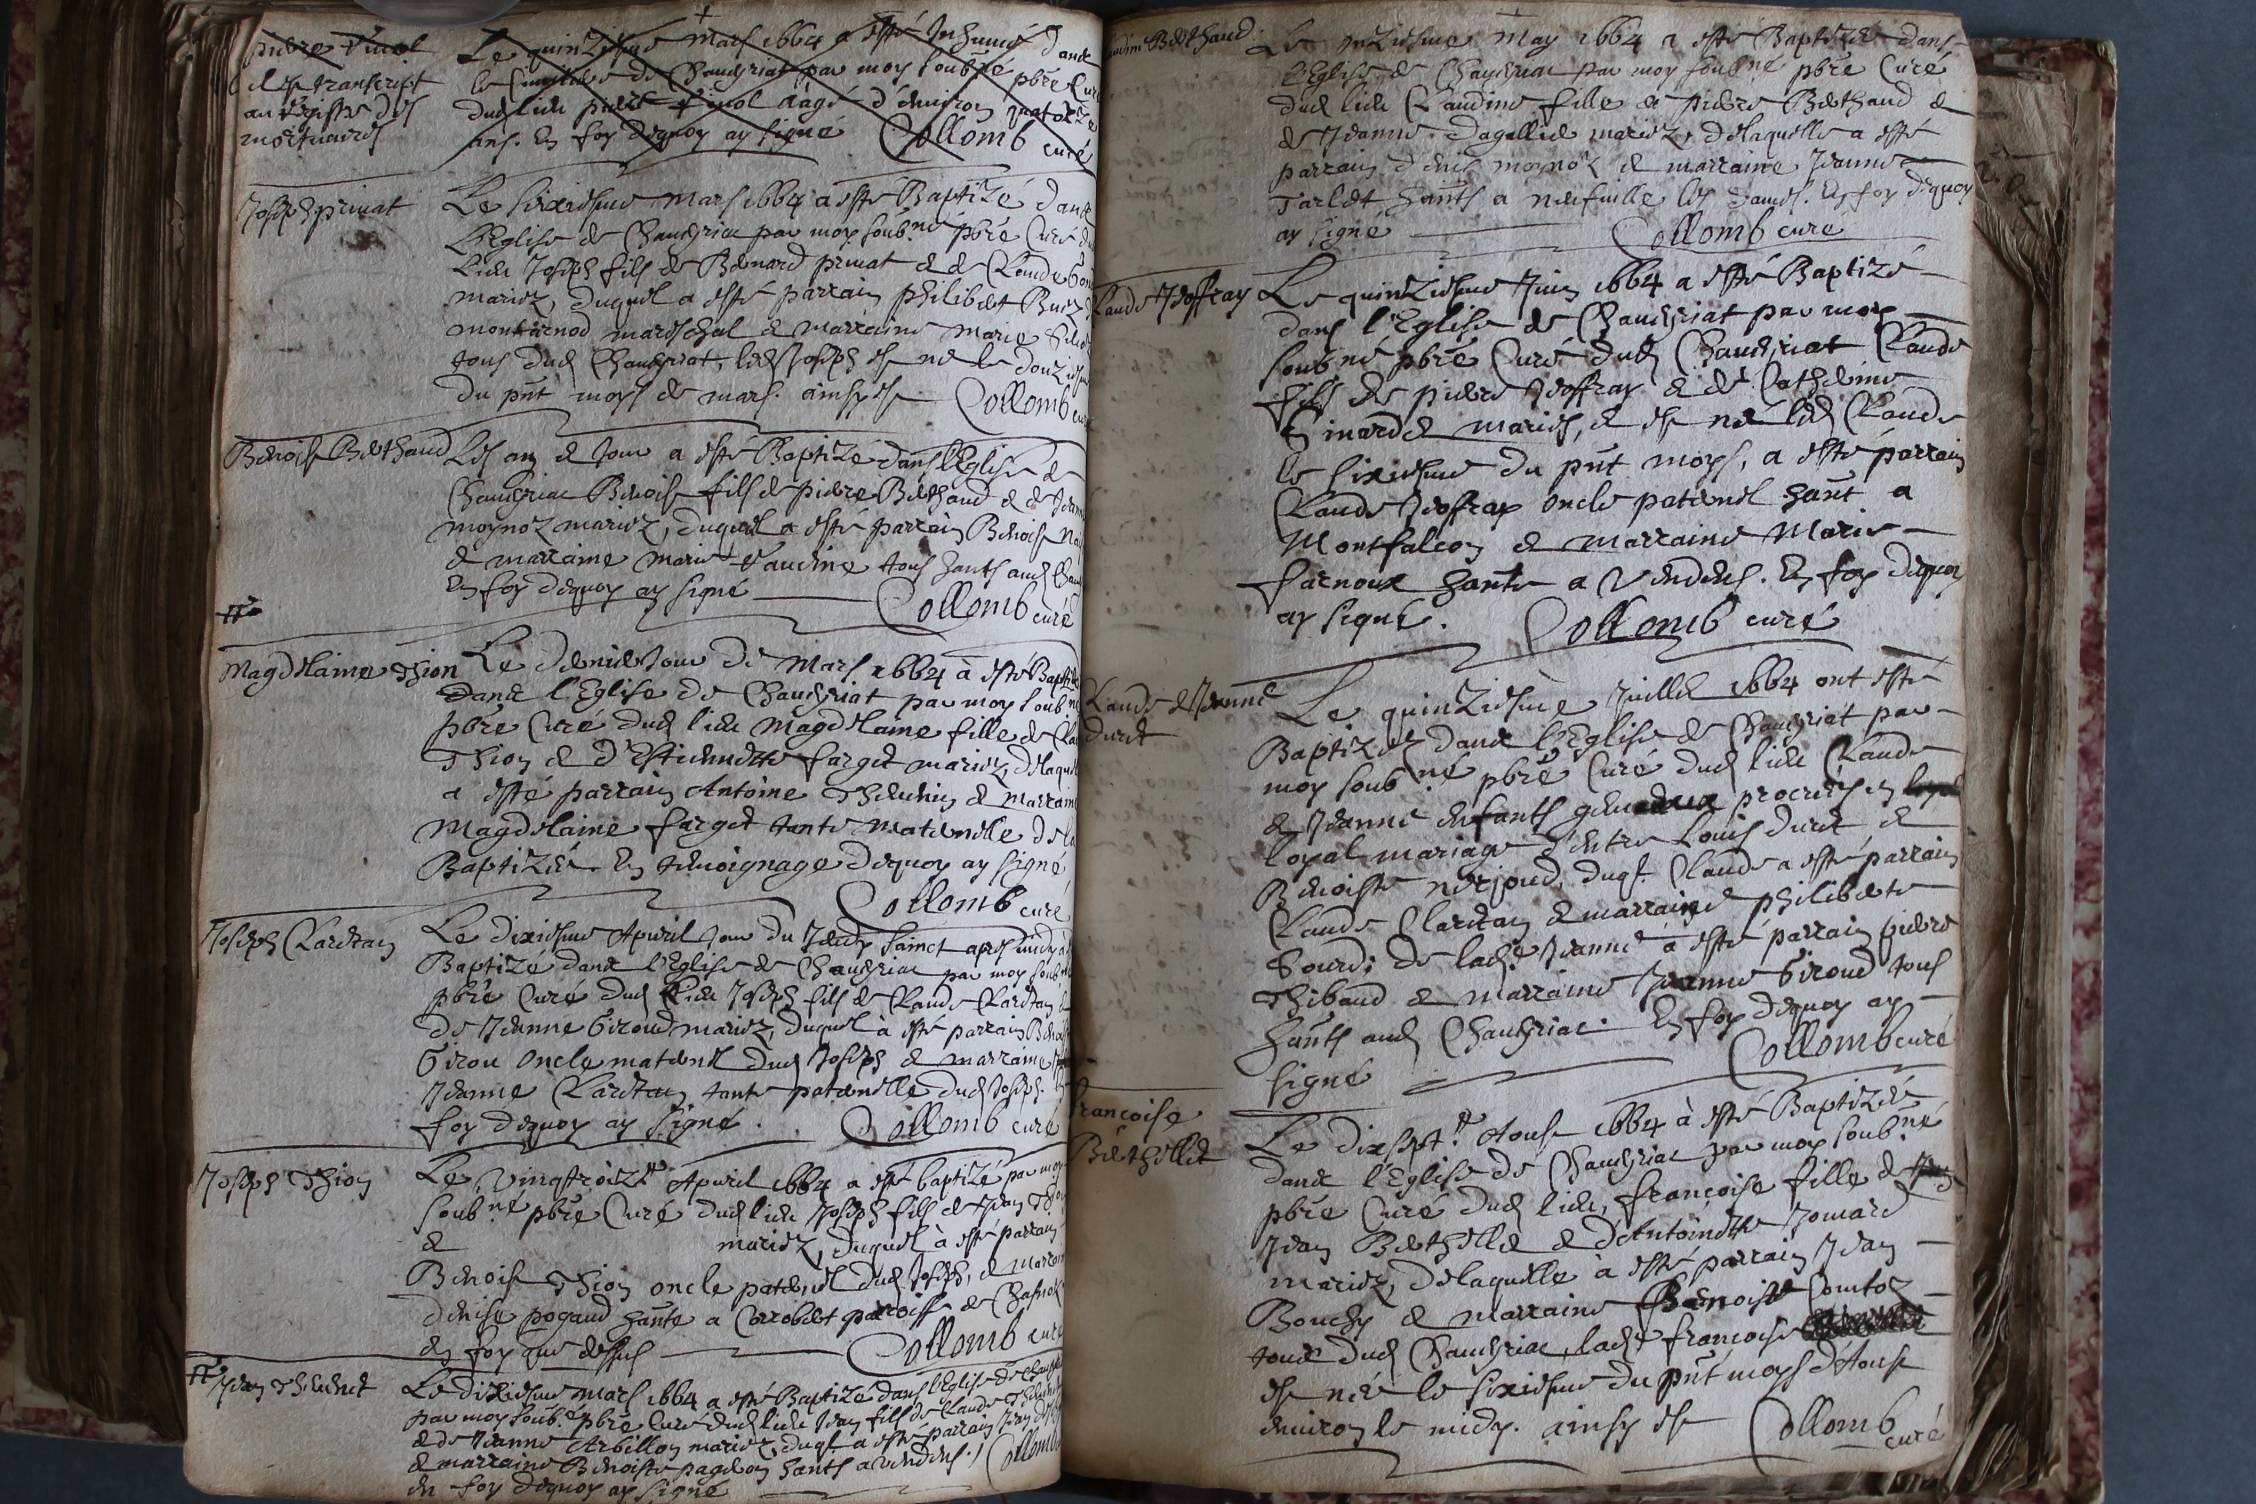 pierre Vinol
il est transcript
au registre des
mortuaires
Le quinziesme Mars 1664 a esté Inhumé dans
le Cimitiere de Chaueyriat par moy soubné pbre Curé
dud lieu pierre Vinol aagé d'enuiron quatorze
ans. En foy dequoy ay signé Collomb curé
Joseph priuat
Le sixiesme Mars 1664 a esté Baptizé dans
l'Eglise de Chaueyriat par moy soubné pbre Curé du
lieu Joseph fils de Bernard priuat & de Claude
mariez, duquel a esté parrain philibert Buez
mareschal & marraine Marie
tous dud Chaueyriat, led Joseph est né le douziesme
du pnt moys de mars. ainsy est Collomb curé
Benoist Berthaud
Lesd an & Jour a esté Baptizé dans l'Eglise de
Chaueyriat Benoist fils de pierre Berthaud & de Jeanne
moynoz mariez, duquel a esté parrain Benoist
& marraine Marie Vaudine tous hants aud
En foy dequoy ay signé Collomb curé
Magdelaine Thion
Le dernier Jour de Mars 1664 à esté Baptizée
dans l'Eglise de Chaueyriat par moy soubné
pbre Curé dud lieu Magdelaine fille de
Thion & d'Estiennette farget mariez, delaquelle
a esté parrain Antoine Theuenin & Marraine
Magdelaine farget tante maternelle de la
Baptizée. En temoignage dequoy ay signé
Collomb curé
Joseph Clardtan
Le dixiesme Apuril Jour du Jeudy Sainct apres midy a
Baptizé dans l'Eglise de Chaueyriat par moy soubné
pbre Curé dud Lieu Joseph fils de Claude &
de Jeanne Giroud mariez, duquel à esté parrain Benoist
Girou Oncle maternel dud Joseph & marraine
Jeanne tante paternelle dud Joseph. En
foy dequoy ay signé. Collomb curé
Joseph Thion
Le vingtroize Apuril 1664 a esté baptizé par moy
soubné pbre Curé dud lieu Joseph fils de Jean Thion
& mariez, duquel à esté parrain
Benoist Thion oncle paternel dud Joseph, & Marraine
denise pogaud hante a Corrobert parroisse de
En foy que dessus Collomb curé
Jean Theuenet
Le dixiesme Mars 1664 a esté Baptizé dans l'Eglise de
par moy soubné pbre Curé dud lieu Jean fils de Claude
& de Jeanne Arbillon mariez, duql a esté parrain Jean
& marraine Benoiste pageon hants a Vendens. Collomb
En foy dequoy ay signé
Claudine Berthaud
Le onziesme May 1664 a esté Baptizée dans
l'Eglise de Chaueyriat par moy soubné pbre Curé
dud lieu Claudine fille a pierre Berthaud &
de Jeanne Dagallier mariez, delaquelle a esté
parrain denis moynoz & marraine Jeanne
Tarlet hants a neufuille les dames. En foy dequoy
ay signé Collomb cure
Claude Jeoffray
Le quinziesme Juin 1664 a esté Baptizé
dans l'Eglise de Chaueyriat par moy
soubné pbre Curé dud Chaueyriat Claude
fils de pierre Jeoffray & de Catherine
mariés, & est né led Claude
le sixiesme du pnt moys, a esté parrain
Claude Jeoffray Oncle paternel hant a
Montfalcon & marraine Marie
farnoux hante a Vendens. En foy dequoy
ay signé. Collomb curé
Claude & Jeanne
duret
Le quinziesme Juillet 1664 ont esté
Baptizez dans l'Eglise de Chaueyriat par
moy soubné pbre Curé dud lieu Claude
& Jeanne enfants procréés en
loyal mariage d'entre Louis duret &
Benoiste nerjoud, duqt. Claude a esté parrain
Claude & marraine philiberte
Gourd; de lade Jeanne à esté parrain pierre
Thibaud & marraine Jeanne Giroud tous
hants aud Chaueyriat. En foy dequoy ay
signé Collomb curé
francoise
Berthellet
Le dixsept.e Aoust 1664 à esté Baptizée
dans l'Eglise de Chaueyriat par moy soubné
pbre Curé dud lieu, francoise fille de
Jean Berthellet & d'Antoinette Jomard
mariez, delaquelle à esté parrain Jean
Bouchy & marraine Benoiste Comtoz
tous dud Chaueyriat, lade francoise
est née le sixiesme du pnt moys d'Aoust
enuiron le midy. ainsy est Collomb
curé